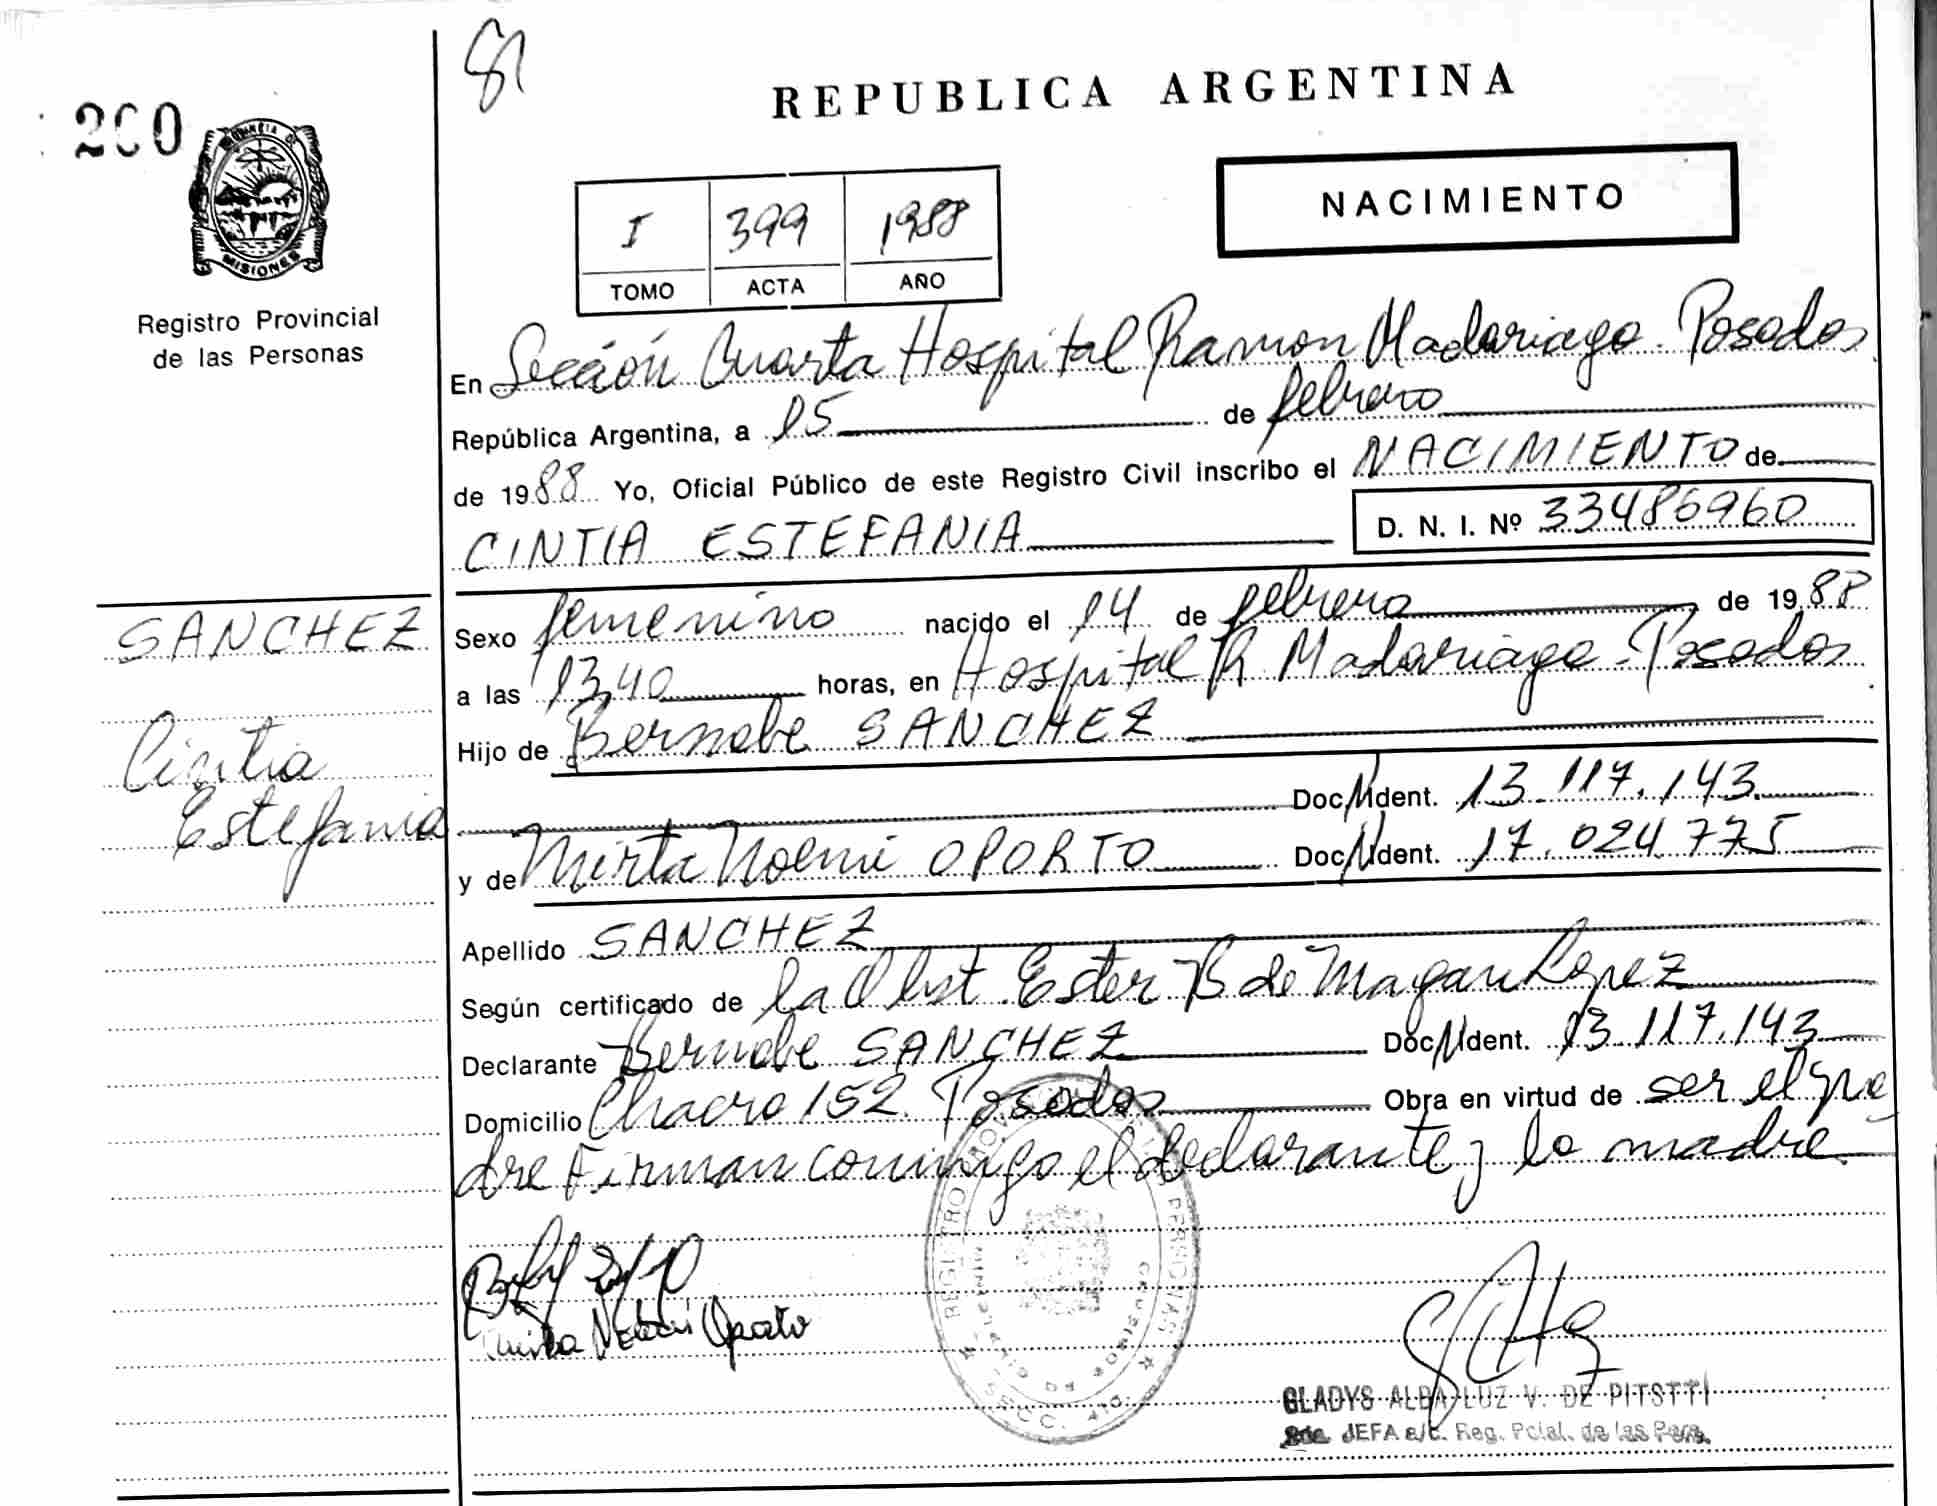 81
REPUBLICA ARGENTINA
200
PROVINCIA DE
MISIONES
Registro Provincial
de las Personas
I 399 1988
TOMO ACTA AÑO
NACIMIENTO
En Sección Cuarta Hospital Ramon Madariaga. Posadas
República Argentina, a 15 de febrero
de 1988 Yo, Oficial Público de este Registro Civil inscribo el NACIMIENTO de
CINTIA ESTEFANIA D. N. I. Nº 33486960
SANCHEZ
Cintia
Estefania
Sexo femenino nacido el 14 de febrero de 1988
a las 13,40 horas, en Hospital R Madariaga. Posadas
Hijo de Bernabe SANCHEZ
Doc. Ident. 13.117.143
y de Mirta Noemi OPORTO Doc. Ident. 17.024.775
Apellido SANCHEZ
Según certificado de la Obst. Ester B de Magan Lopez
Declarante Bernabe SANCHEZ Doc. Ident. 13.117.143
Domicilio Chacra 152. Posadas Obra en virtud de ser el pa
dre Firman conmigo el declarante y la madre
Mirta Noemi Oporto
REGISTRO PROVINCIAL DE LAS PERSONAS
GLADYS ALBA LUZ V. DE
JEFA a/c. Reg. Pcial. de las Pers.